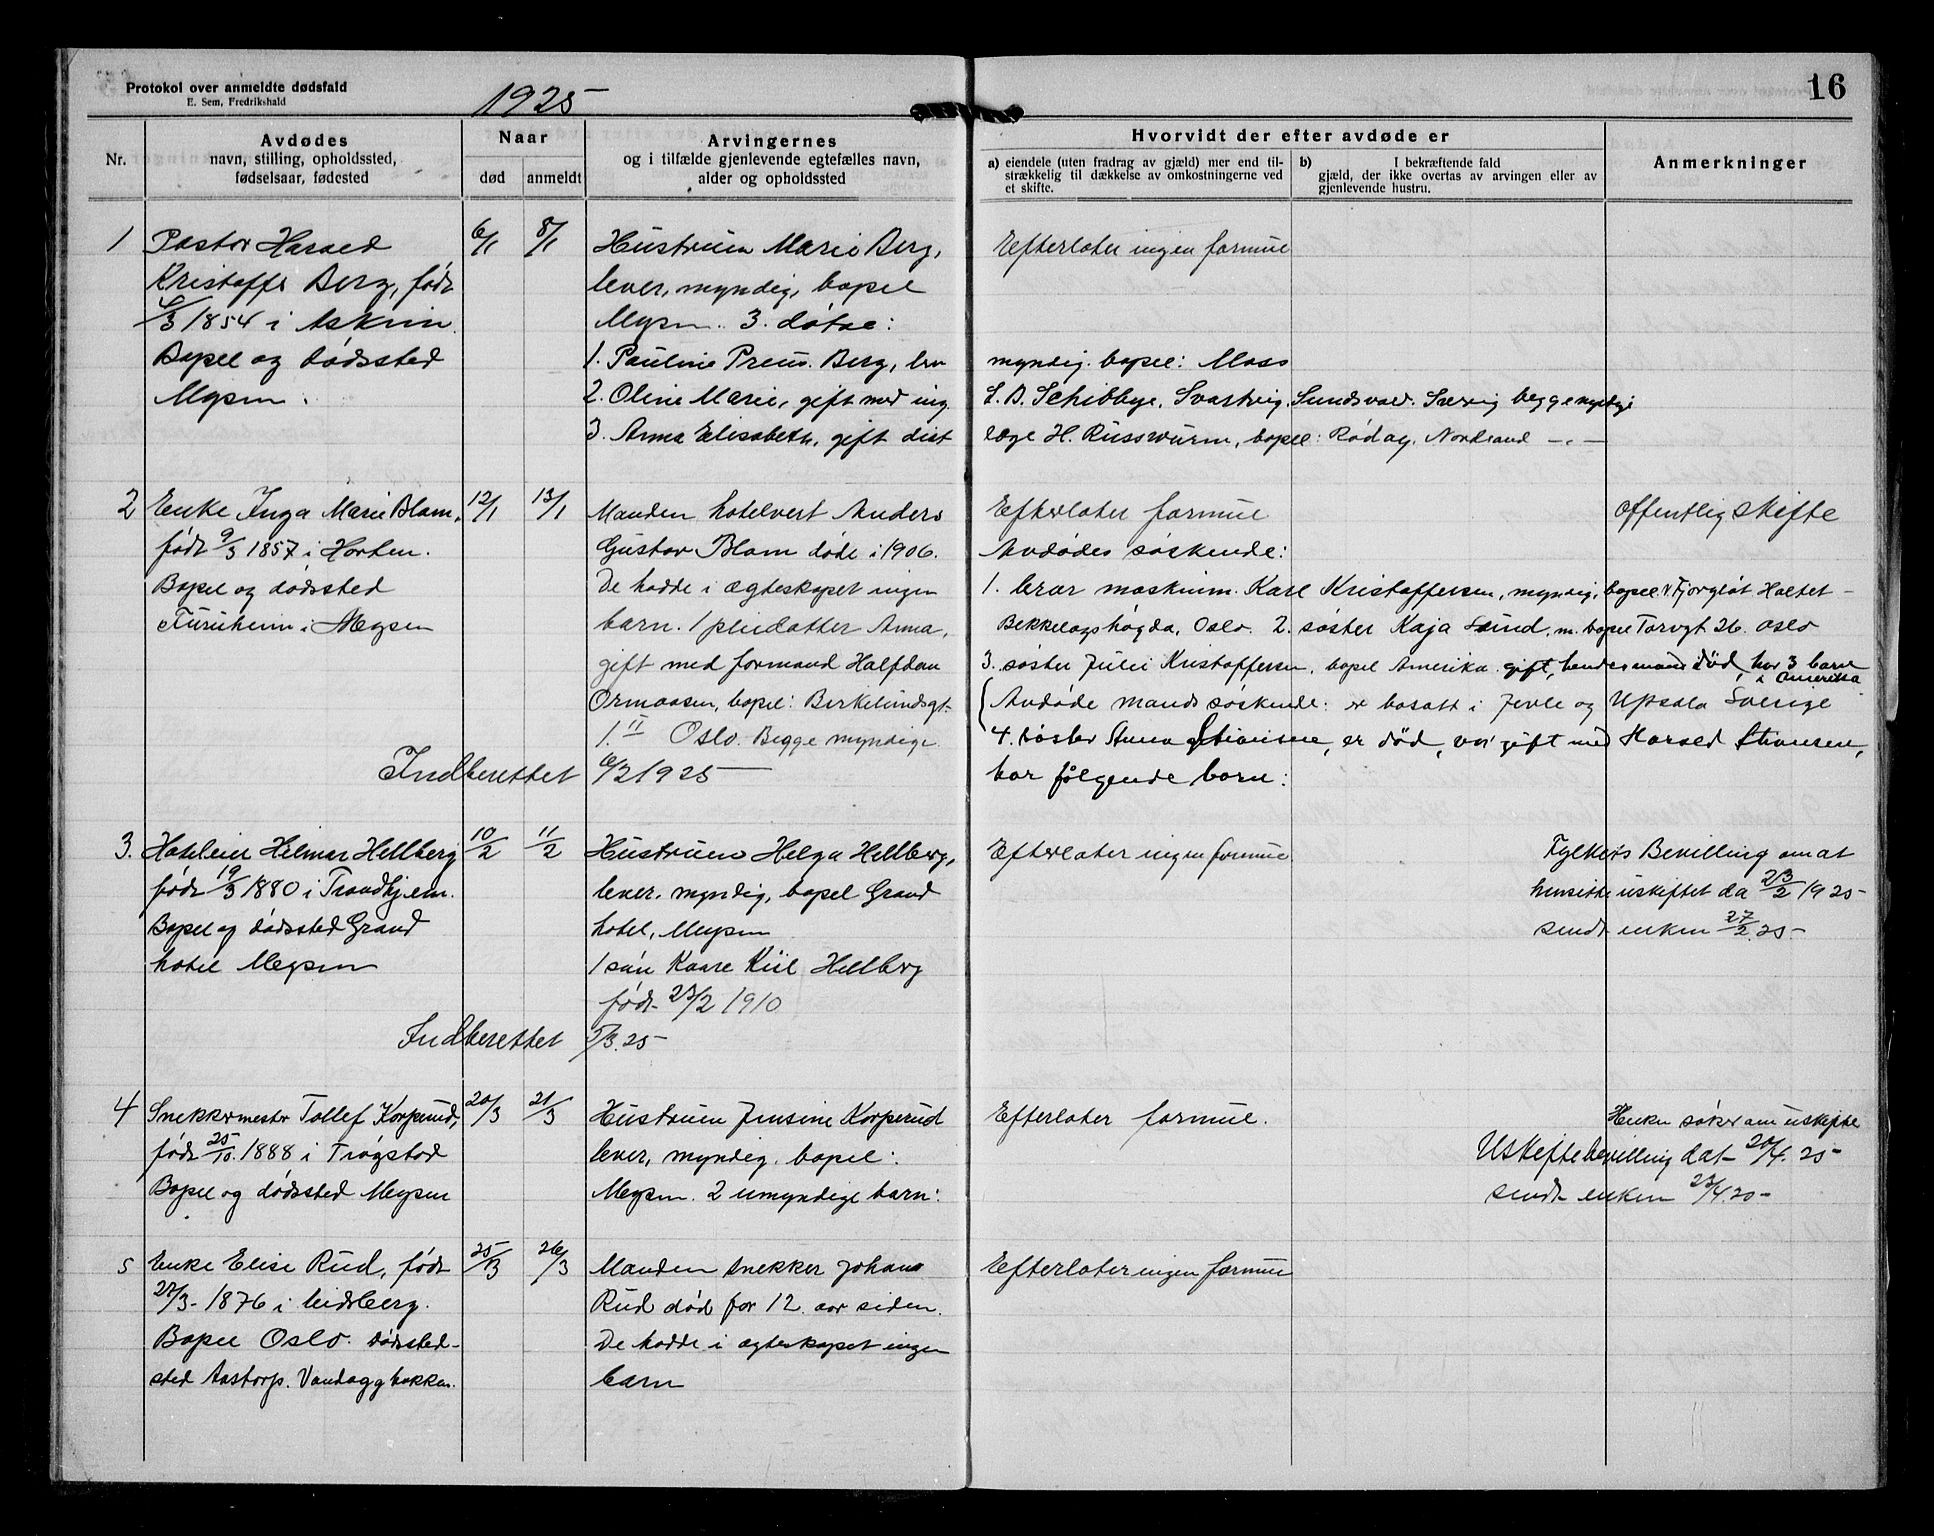 Protokol over anmeldte dødsfald
E. Sem, Fredrikshald
1925
16
Nr.
Avdødes
navn, stilling, opholdssted,
fødselsaar, fødested
Naar
død
anmeldt
Arvingernes
og i tilfælde gjenlevende egtefælles navn,
alder og opholdssted
Hvorvidt der efter avdøde er
a) eiendele (uten fradrag av gjæld) mer end til-
strækkelig til dækkelse av omkostningerne ved
et skifte.
b) I bekræftende fald
gjæld, der ikke overtas av arvingen eller av
gjenlevende hustru.
Anmerkninger
1
Pastor Harald
Kristoffer Berg, født
/3 1854 i Askim.
Bopel og dødssted
Mysen.
6/1
8/1
Hustruen Marie Berg,
lever, myndig, bopel
Mysen. 3 døtre:
1. Pauline Preus. Berg,
2. Oline Marie, gift med ing.
3. Anna Elisabeth, gift dist
Efterlater ingen formue
myndig. bopel: Moss
S. B. Schibbye, Svartvig, Sundsval. Sverig begge myndige
læge H. Russwurm, bopel: Rødøy, Nordland —"—
2
Enke Inga Marie Blom,
født 9/3 1857 i Horten.
Bopel og dødssted
Furuheim i Mysen
12/1
13/1
Manden hotelvert Anders
Gustav Blom døde i 1906.
De hadde i ægteskapet ingen
barn. 1 pleidatter Anna,
gift med formand Halfdan
Ormaasen, bopel: Birkelundsgt.
1. II Oslo. Begge myndige
Indberettet 6/2 1925 —
Efterlater formue
Avdødes søskende:
1. bror maskinm. Karl Kristoffersen, myndig, bopel v. Fjorgløt Holtet -
Bekkelagshøgda, Oslo. 2. søster Kaja Lund, m. bopel Torvgt 26. Oslo
3. søster Julie Kristoffersen, bopel Amerika gift, hendes mand død, har 3 barn
i Amerika
(Avdøde mands søskende: er bosatt i Jevle og Upsala Sverige
4. søster Anna Stiansen, er død, var gift med Harald Stiansen,
har følgende barn:
Offentlig skifte
3.
Hoteleier Hilmar Hellberg
født 19/3 1880 i Trondhjem.
Bopel og dødssted Grand
hotel Mysen
10/2
11/2
Hustruen Helga Hellberg,
lever, myndig, bopel Grand
hotel, Mysen
1 søn Kaare Kiil Hellberg
født 23/2 1910
Indberettet 5/3.25-
Efterlater ingen formue
Fylkets Bevilling om at
hensitte i uskiftet da 23/2 1925-
sendt enken 27/2.25-
4
Snekkermester Tollef Korperud,
født 25/10. 1888 i Trøgstad
Bopel og dødssted Mysen
20/3
21/3
Hustruen Jensine Korperud
lever, myndig. bopel:
Mysen. 2 umyndige barn:
Efterlater formue.
Henku søker om uskifte
Uskiftebevilling dat 20/4. 25-
sendt enken 23/4.25-
5
Enke Elise Rud, født
27/3- 1876 i Eidsberg.
Bopel Oslo. Dødssted-
sted Aastorp. Vandugg bakken.
25/3
26/3
Manden snekker Johans
Rud død for 12 aar siden.
De hadde i ægteskapet ingen
barn
Efterlater ingen formue